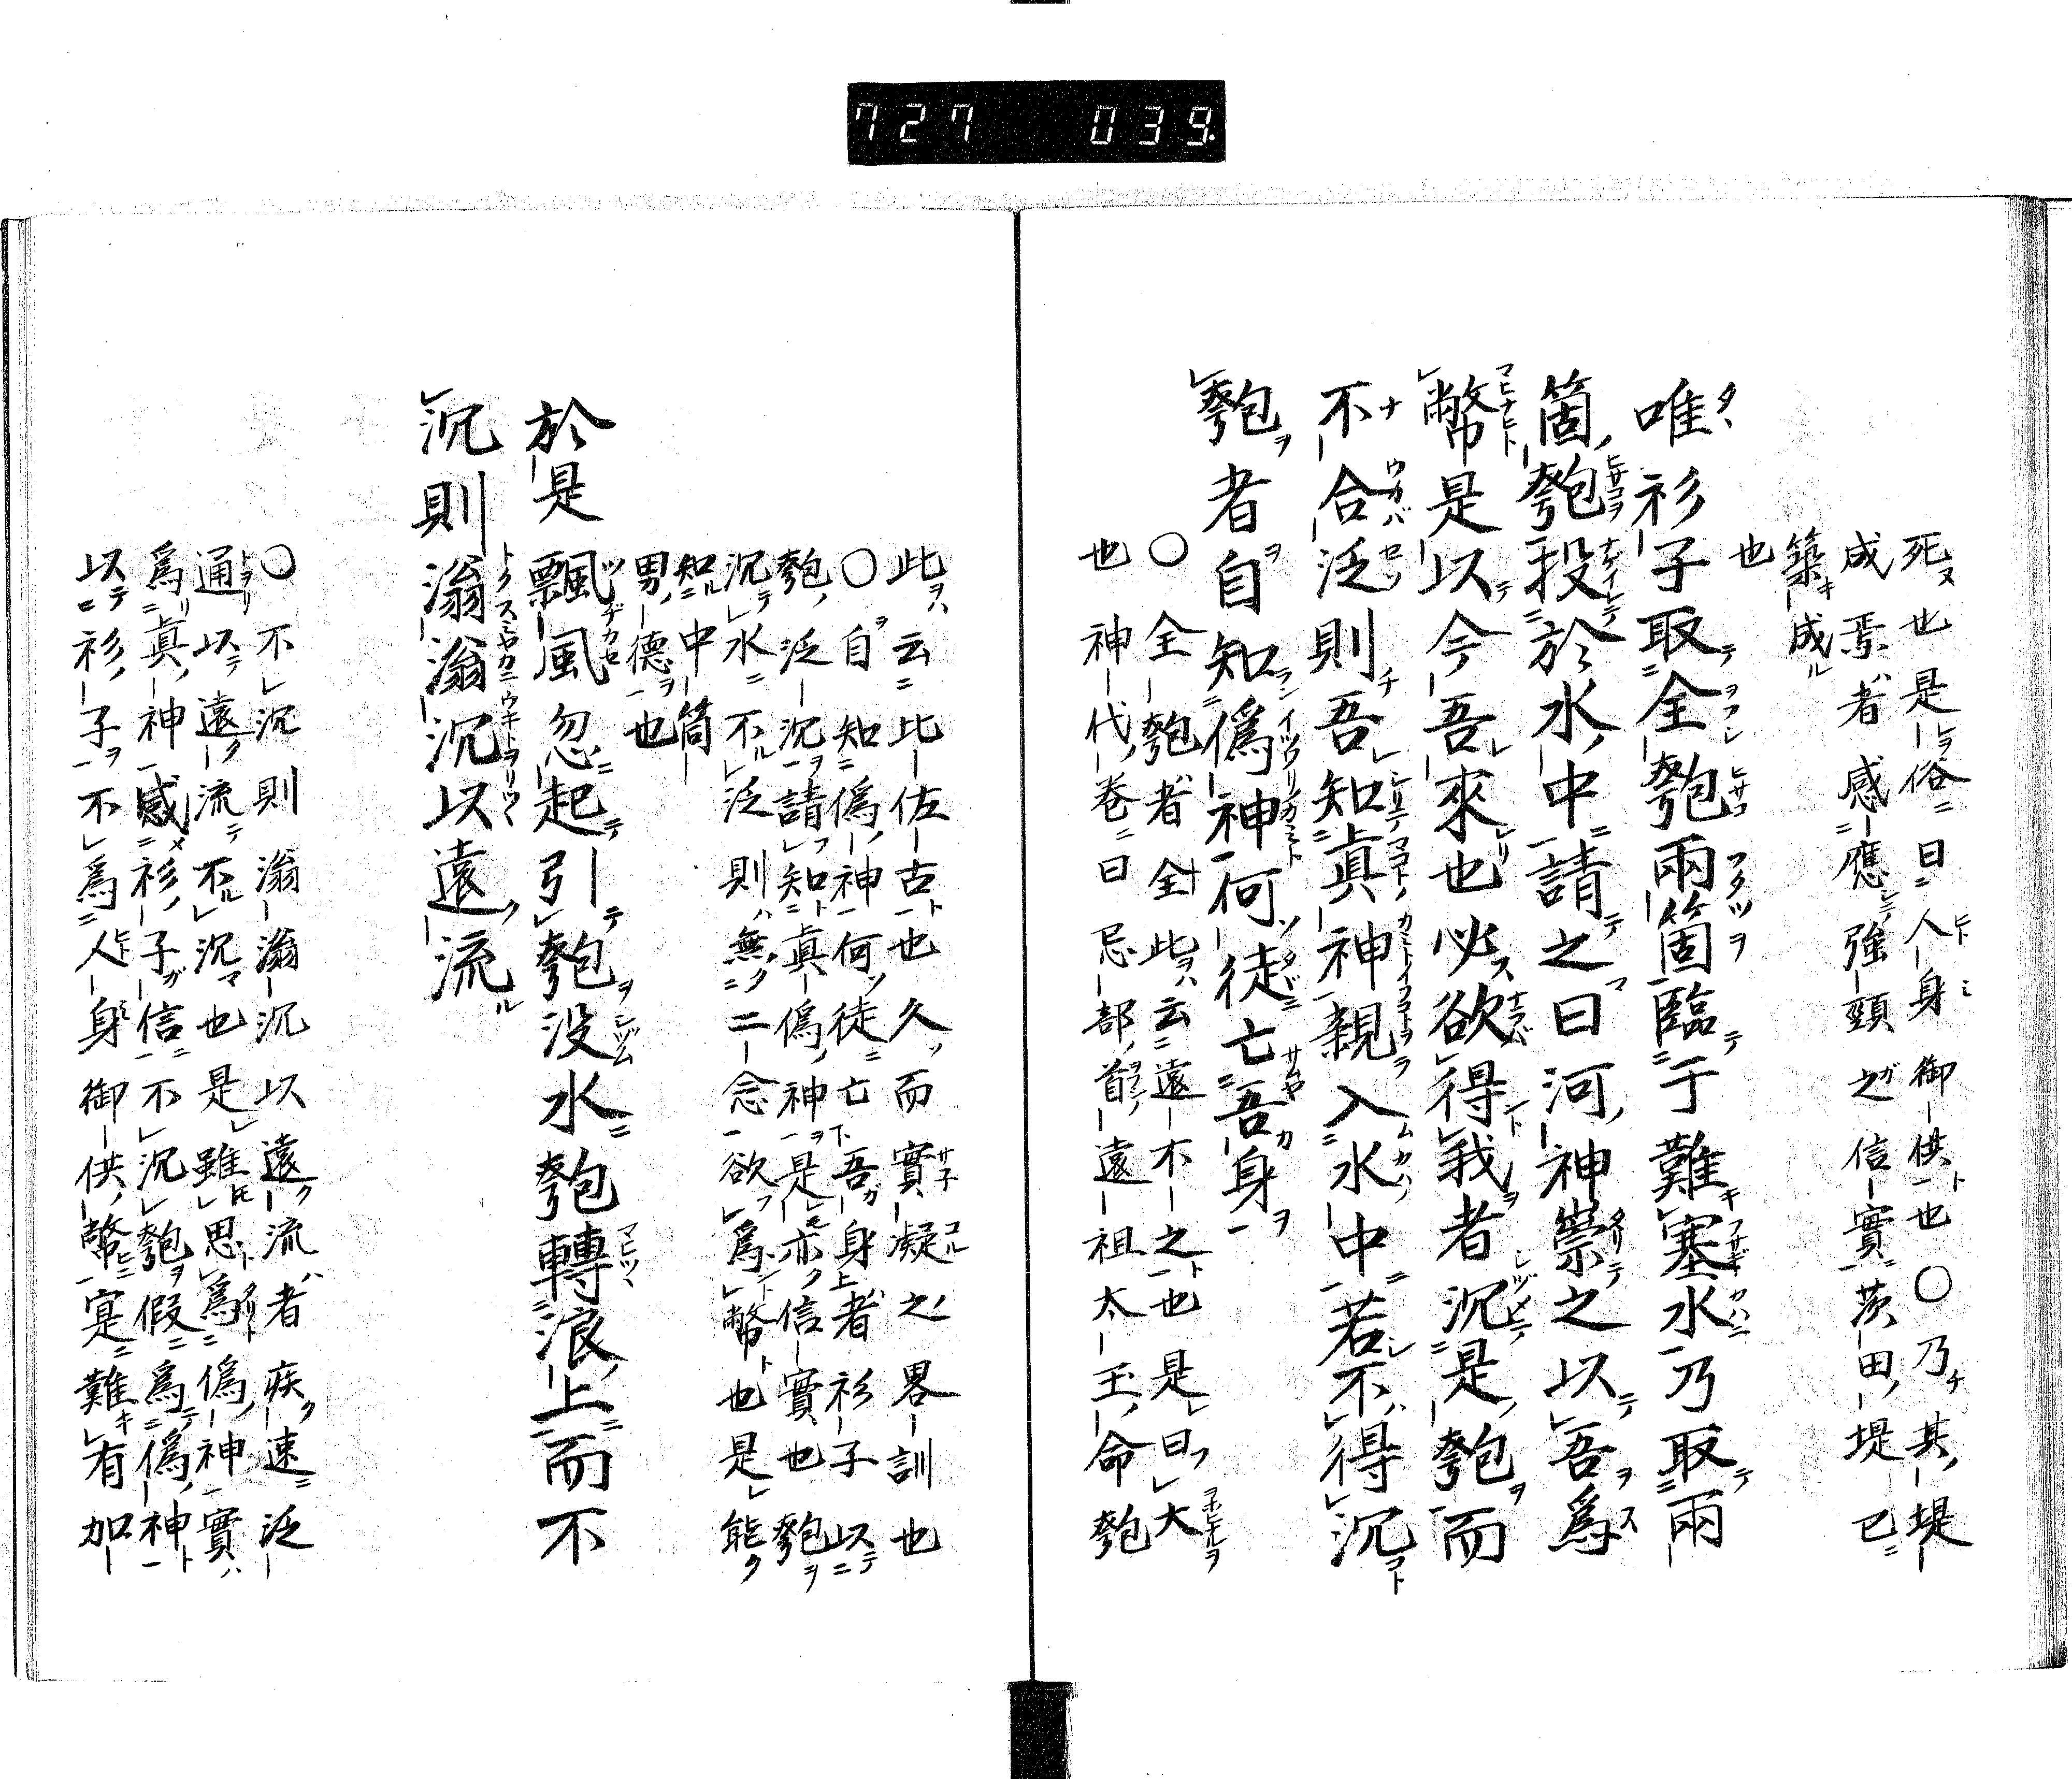 727 039
死也是俗曰人身御供也〇乃其堤
成焉者感應強頸之信實茨田堤已
築成
也
唯衫子取全匏兩箇臨于難塞水乃取兩
箇匏投於水中請之曰河神祟之以吾爲
幣是以今吾來也必欲得我者沉是匏而
不合泛則吾知眞神親入水中若不得沉
匏者自知僞神何徒亡吾身
〇全匏者全此云遠不之也是曰大
也神代卷曰忌部首遠祖太玉命匏
此云比佐古也久而實凝之畧訓也
〇自知僞神何徒亡吾身者衫子以
匏泛沉請知眞僞神是亦信實也匏
沉水不泛則無二念欲爲幣也是能
知中筒
男德也
於是飄風忽起引匏没水匏轉浪上而不
沉則滃滃沉以遠流
〇不沉則滃滃沉以遠流者疾速泛
通以遠流不沉也是雖思爲僞神實
爲眞神感衫子信不沉匏假爲僞神
以衫子不爲人身御供幣寔難有加